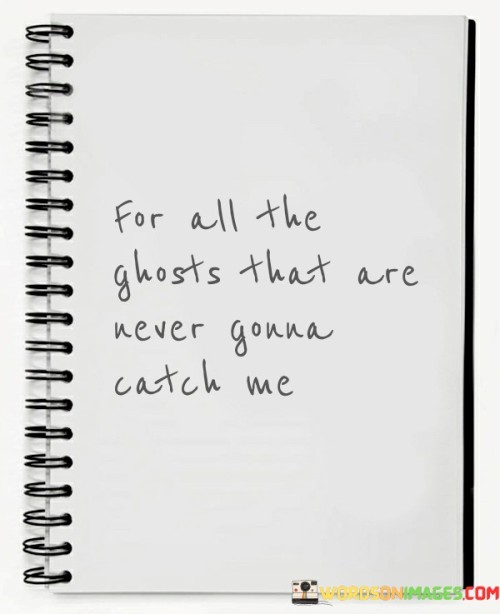 For all the
ghosts that are
never gonna
catch me
WORDSONIMAGES.COM